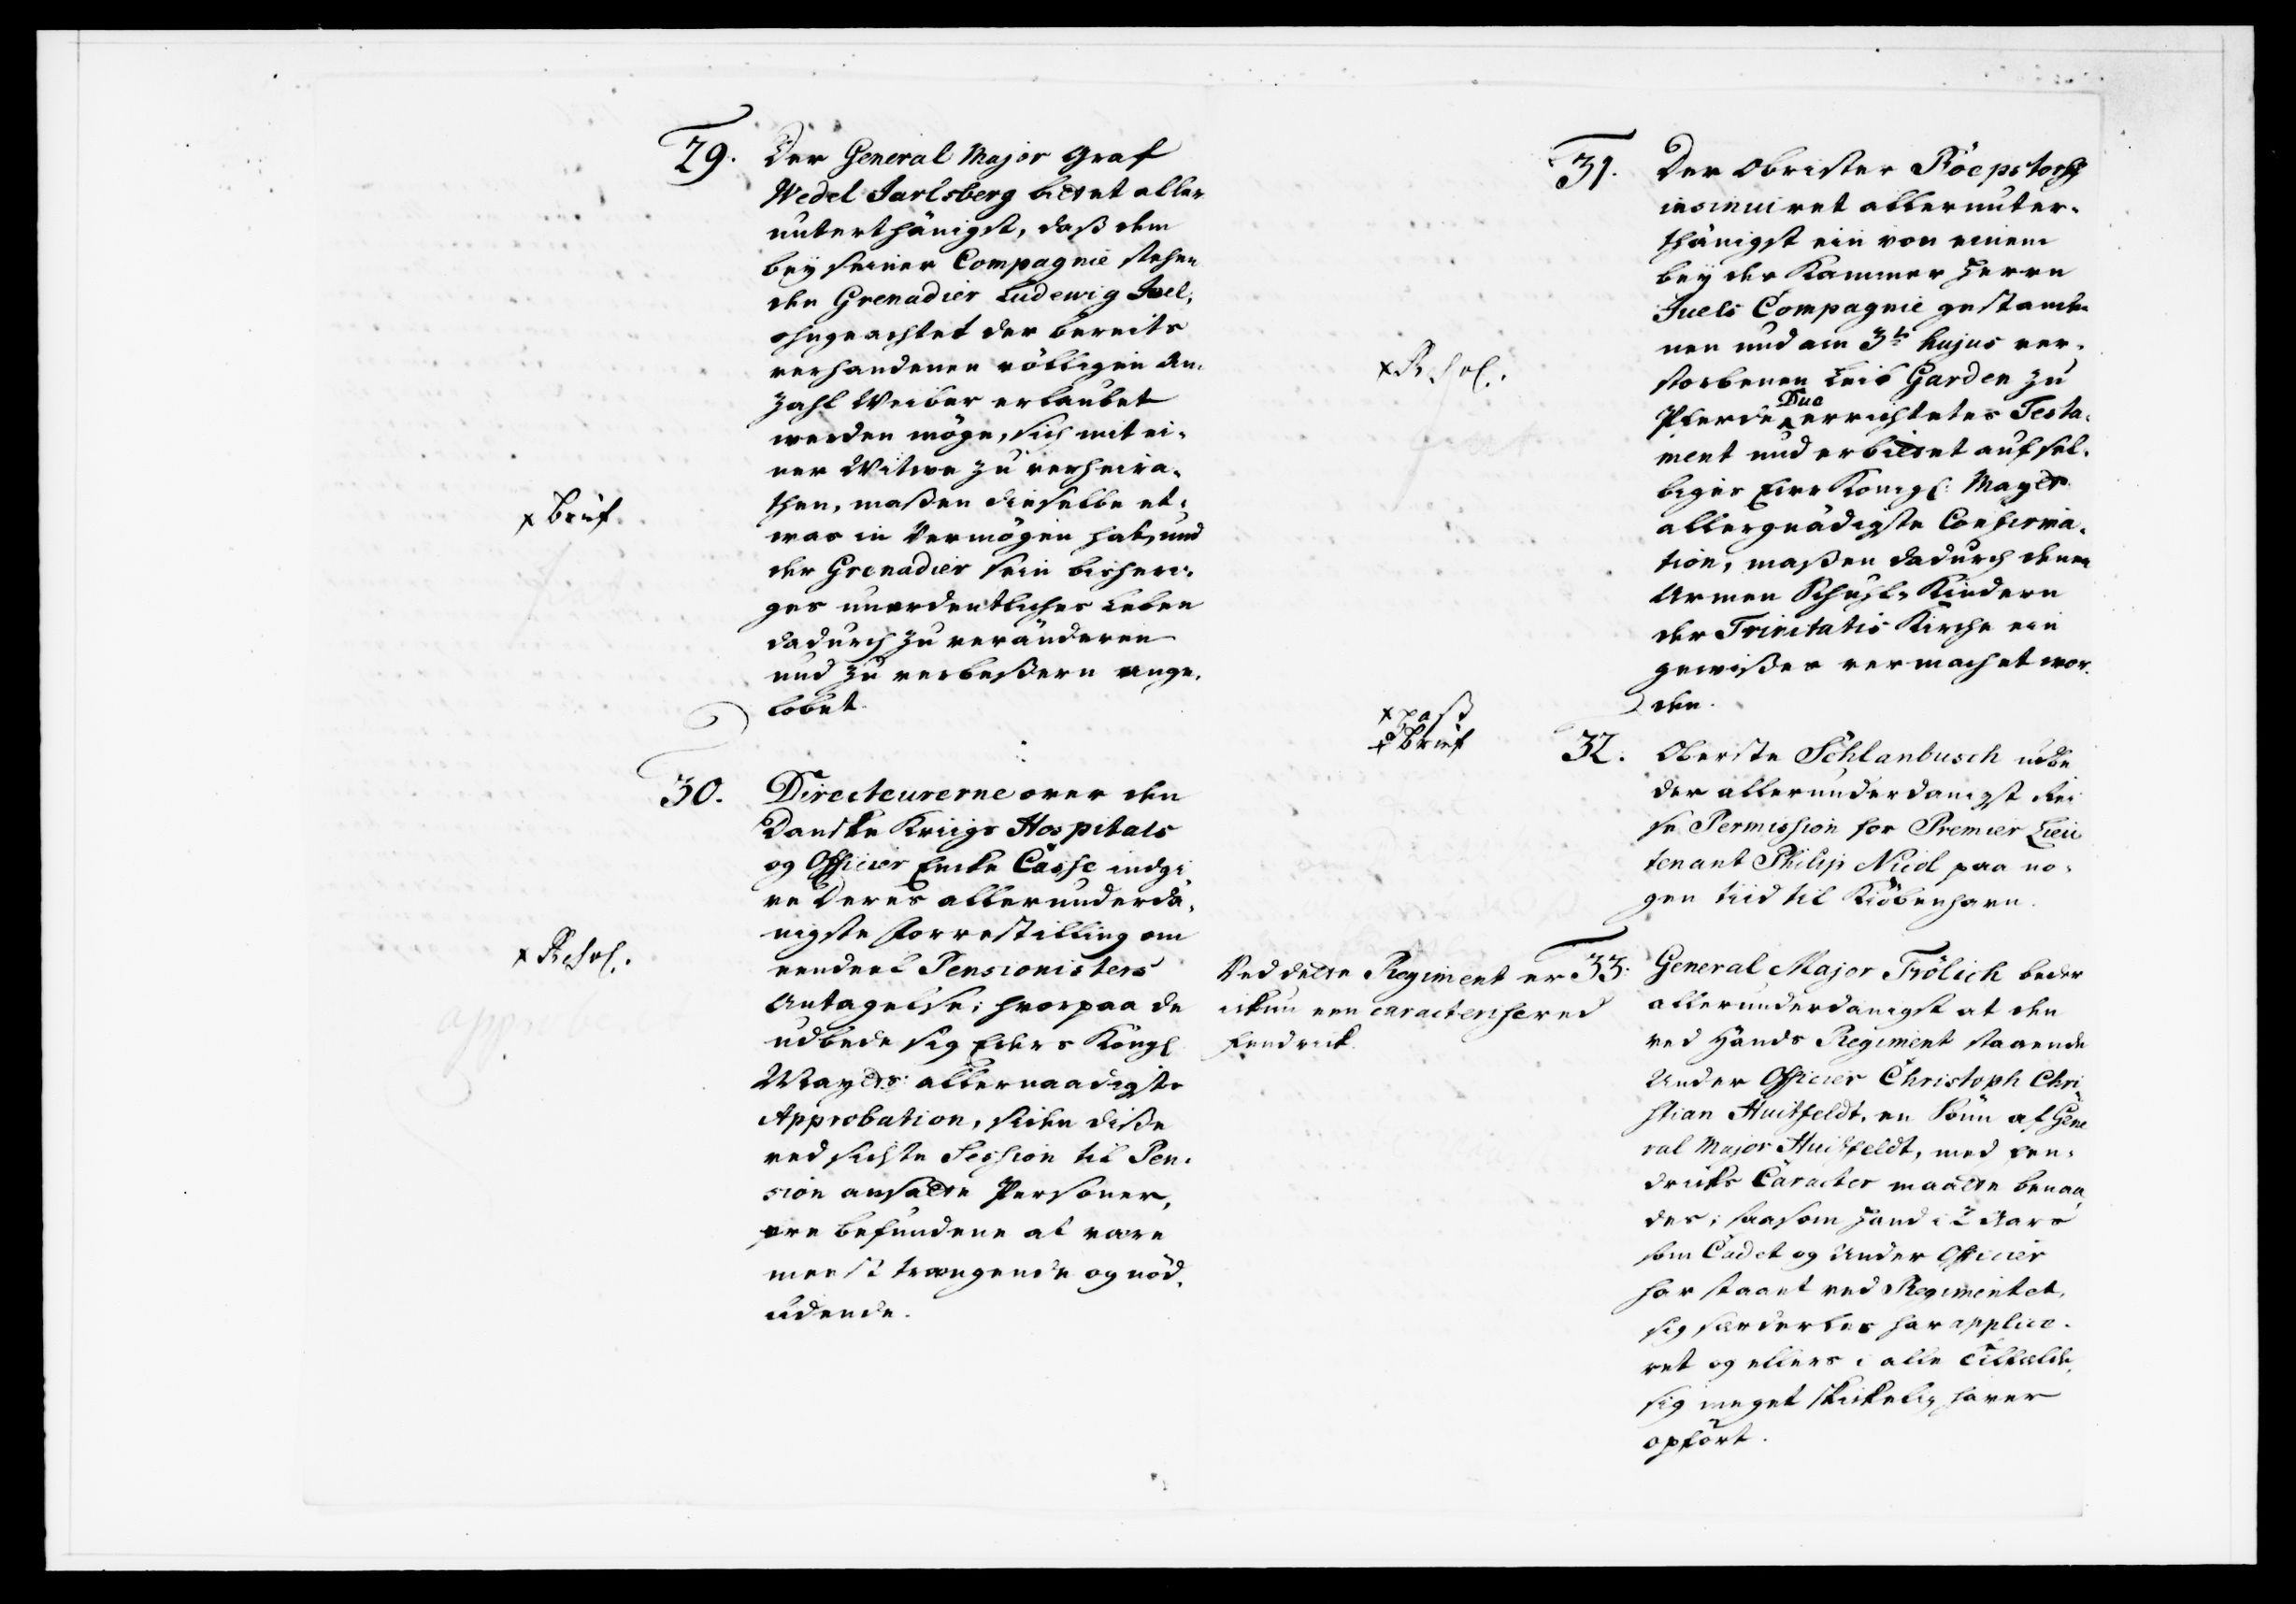 29. Der General Major Graf
Wedel Jarlsberg bittet aller
unterthänigst, daß dem
bey seiner Compagnie stehen
den Grenadier Ludewig Joel,
ohngeachtet der bereits
verhandenen völligen An-
zahl Weiber erlaubet
werden möge, sich mit ei-
ner Witwe zu verheira-
then, maßen dieselbe et-
was in Vermögen hat, und
der Grenadier sein bisheri-
ges unordentliches Leben
dadurch zu veränderen
und zu verbeßern ange-
lobet.
x brief
30. Directeurerne over den
Danske Krigs Hospitals
og Officier Encke Casse indgi-
ve Deres allerunderdä-
nigste Forrestilling om
eendeel Pensionisters
Antagelse; hvorpaa de
udbede sig Eders Köngl
Mayts: allernaadigste
Approbation, siden disse
ved sidste Session til Pen-
sion ansatte Personer,
ere befundene at være
meest trængende og nød-
lidende.
x Resol.
appr
31. Der Obrister Röepstorff
insinuiret allerunter-
thänigst ein von einem
bey der Kammer Herrn
Juels Compagnie gestande-
nen und am 3t hujus ver-
storbenen Leib Garden zu
Pferde Duc errichtetes Testa-
ment und erbittet auf sel-
biges Eure Königl: Mayts
allergnädigste Confirma-
tion, maßen dadurch denen
Armen Schuhl-Kindern
der Trinitatis Kirche ein
gewißes vermachet wor-
den.
x Resol.
x pass
x brief
32. Oberste Schlanbusch udbe
der allerunderdanigst Rei
se Permission for Premier Lieu
tenant Philip Nicol paa no-
gen tiid til Kiöbenhavn.
33. General Major Frölich beder
allerunderdanigst at den
ved Hands Regiment staaende
Under Officier Christoph Chri-
stian Huitfeldt, en Sönn af Gene
ral Major Huitfeldt, med Fen-
dricks Caracter maatte benaa-
des; saasom Hand i 2 Aars
som Cadet og Under Officier
har staaet ved Regimentet,
sig særdeeles har applice-
ret og ellers i alle tilfælde
sig meget skickelig haver
opfört.
Ved dette Regiment er
ickun een caracteriseret
Fendrick.